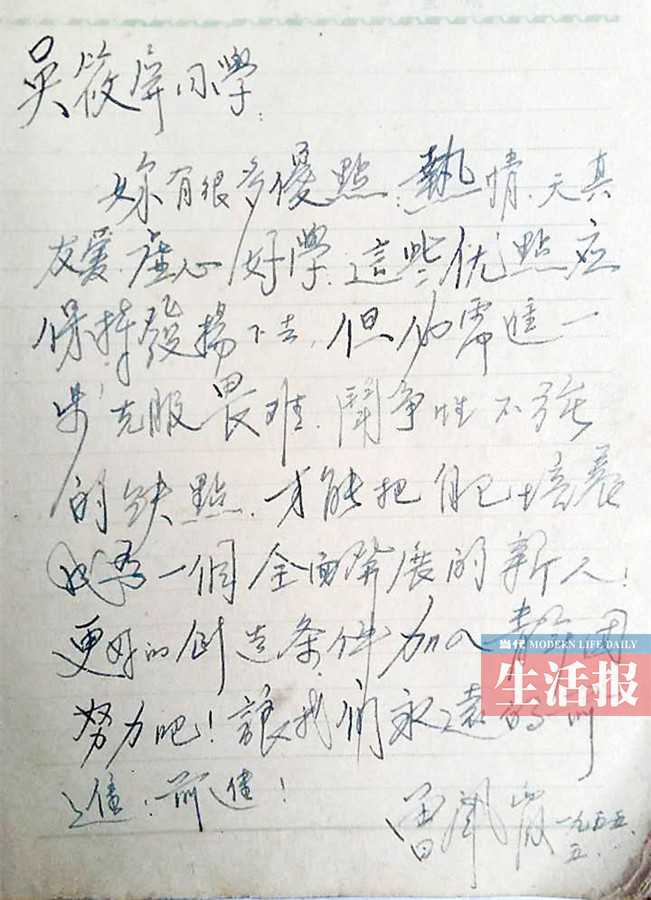 吴筱屏同學：
妳有很多優點：熱情、天真
友爱、虚心好學，這些优點应
保持發揚下去，但仍需進一
步克服畏难、鬪争性不強
的缺點，才能把自己培養
成為一個全面發展的新人！
更好的创造条件加入青年团
努力吧！讓我們永遠的
進，前進！
曾
一九五五.
五.
當代 MODERN LIFE DAILY
生活报